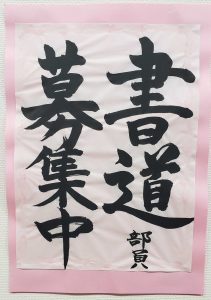 書道
部員
募集中